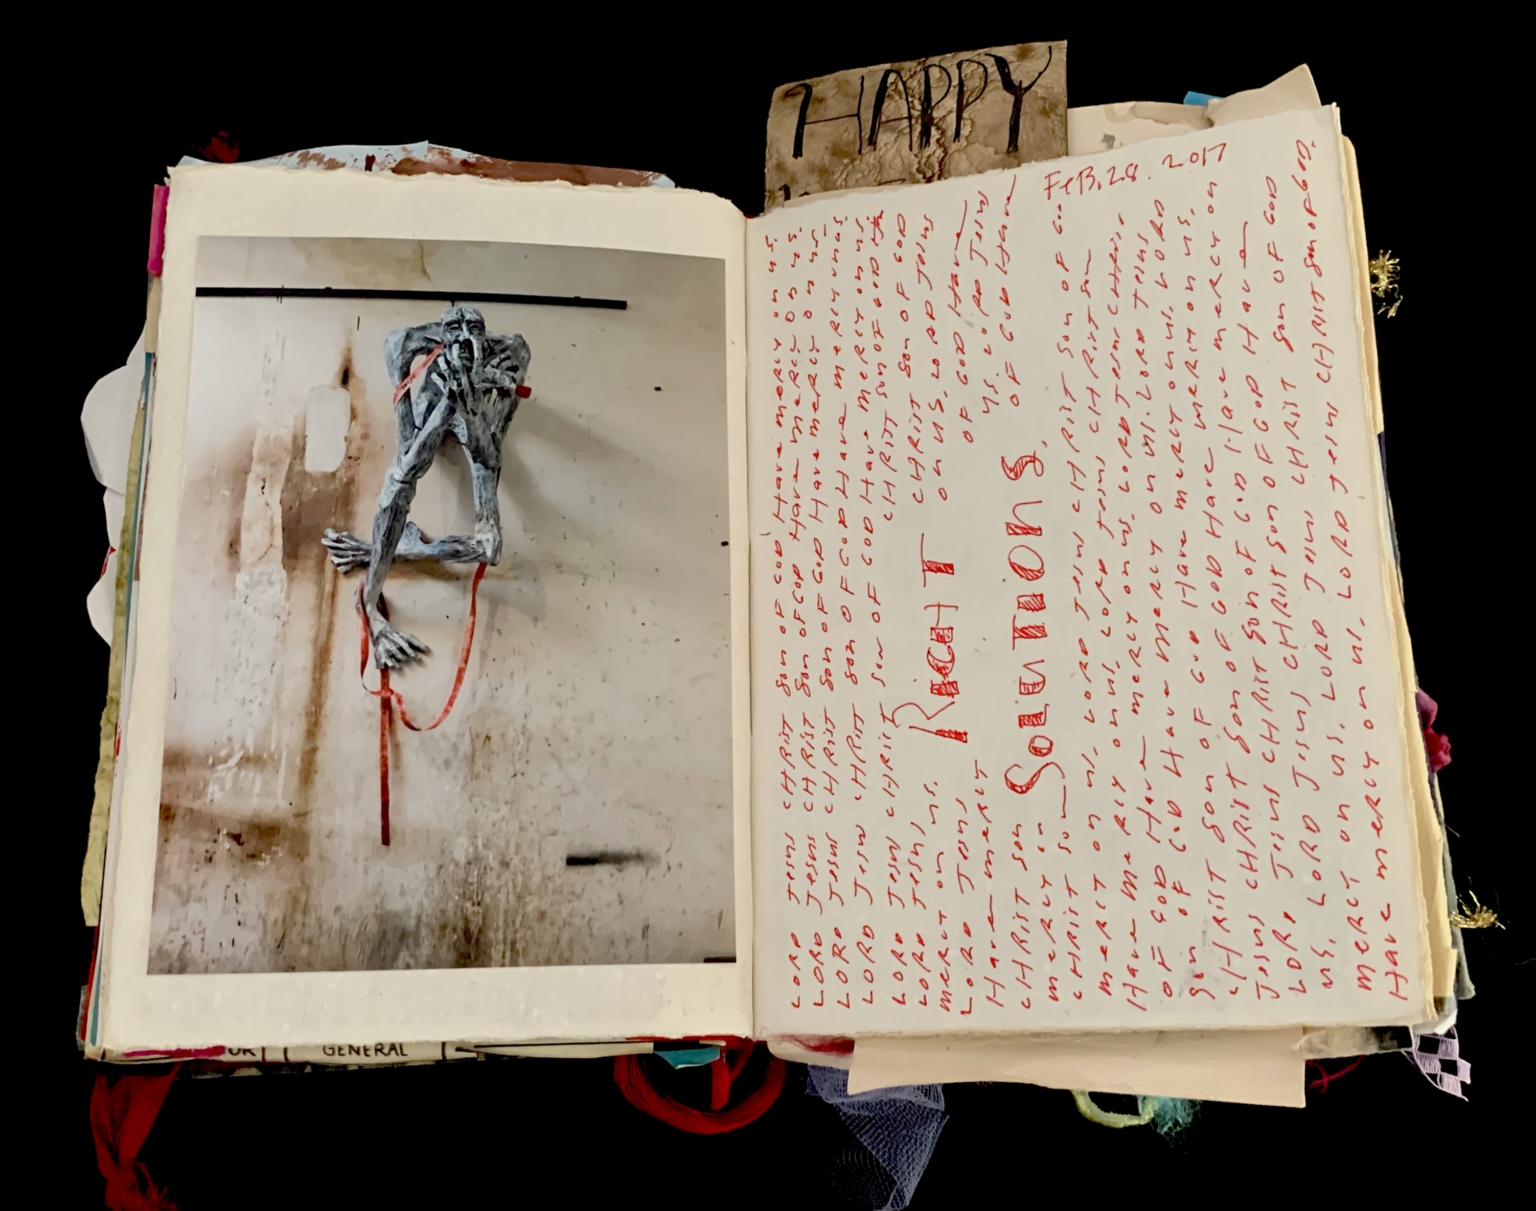 HAPPY
FEB. 28. 2017
LORD JESUS CHRIST Son OF GOD Have mercy on us.
LORD JESUS CHRIST Son OF GOD Have mercy on us.
LORD JESUS CHRIST Son OF GOD Have mercy on us.
LORD JESUS CHRIST Son OF GOD Have mercy on us.
LORD JESUS CHRIST Son OF GOD Have mercy on us
LORD JESUS, CHRIST Son OF GOD
mercy on us. CHRIST Son OF GOD
LORD JESUS on us. LORD JESUS
Have mercy OF GOD Have
CHRIST Son us. LORD JESUS
mercy on OF GOD Have
RIGHT
SOLUTIONS.
CHRIST Son LORD JESUS CHRIST Son OF GOD
mercy on us, LORD JESUS CHRIST Son
Have mercy on us, LORD JESUS CHRIST
OF GOD Have mercy on us. LORD JESUS CHRIST.
Son OF GOD Have mercy on us. LORD JESUS
CHRIST Son OF GOD Have mercy on us. LORD
JESUS CHRIST Son OF GOD Have mercy on us.
LORD JESUS CHRIST Son OF GOD Have mercy on
us. LORD JESUS CHRIST Son OF GOD Have
mercy on us. LORD JESUS CHRIST Son OF GOD
Have mercy on us. LORD JESUS CHRIST Son OF GOD.
GENERAL